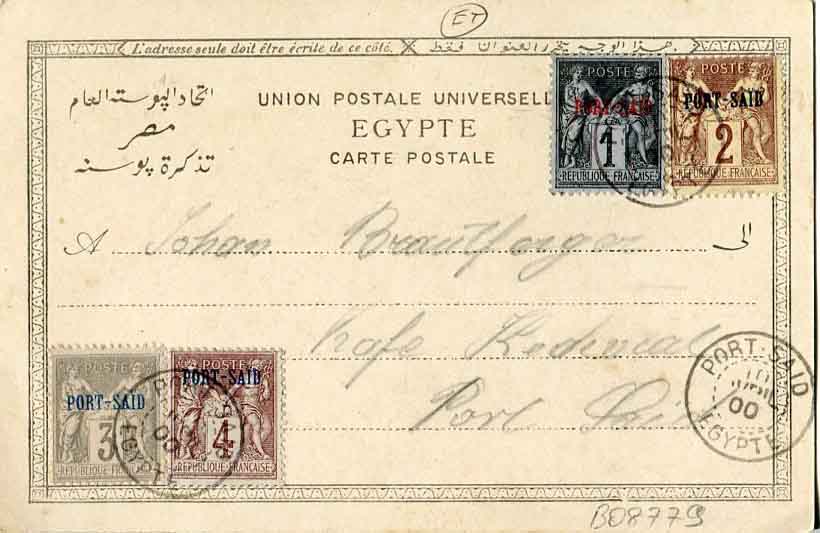 ET
L'adresse seule doit être écrite de ce côté. هذا الوجه يخرر العنوان فقط.
اتحاد البوسته العام
مصر
تذكرة بوسته
UNION POSTALE UNIVERSELL
EGYPTE
CARTE POSTALE
POSTE
PORT-SAID
1
REPUBLIQUE FRANÇAISE
POSTE
PORT-SAID
2
REPUBLIQUE FRANÇAISE
A Johan الى
Kafe
Port Said
POSTE
PORT-SAID
3
REPUBLIQUE FRANÇAISE
POSTE
PORT-SAID
4
REPUBLIQUE FRANÇAISE
00
EGYPTE
PORT-SAID
00
EGYPTE
B08779